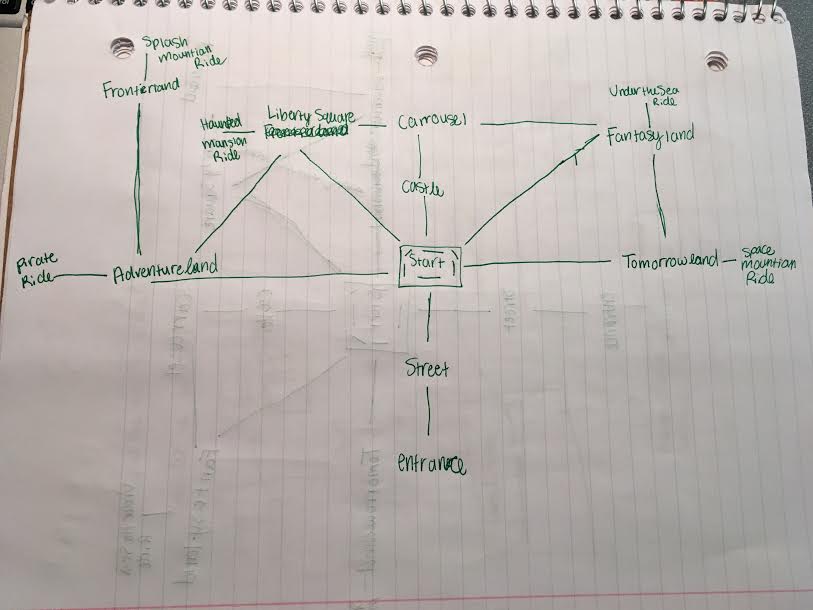 Splash
Mountian
Ride
Frontierland
Haunted
mansion
Ride
Liberty Square
Carrousel
Under the Sea
Ride
Fantasyland
Castle
Pirate
Ride
Adventureland
Start
Tomorrowland
Space
Mountian
Ride
Street
entrance